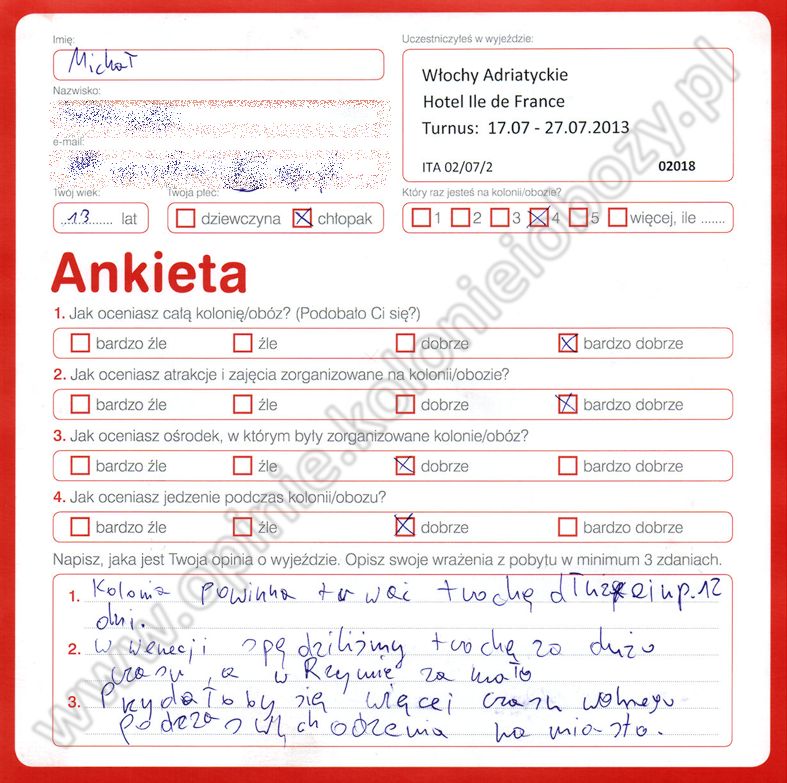 Imię:
Michał
Uczestniczyłeś w wyjeździe:
Włochy Adriatyckie
Hotel Ile de France
Turnus: 17.07 - 27.07.2013
ITA 02/07/2 02018
Nazwisko:
e-mail:
Twój wiek: Twoja płeć: Który raz jesteś na kolonii/obozie?
13 lat dziewczyna chłopak 1 2 3 4 5 więcej, ile .......
Ankieta
1. Jak oceniasz całą kolonię/obóz? (Podobało Ci się?)
bardzo źle źle dobrze bardzo dobrze
2. Jak oceniasz atrakcje i zajęcia zorganizowane na kolonii/obozie?
bardzo źle źle dobrze bardzo dobrze
3. Jak oceniasz ośrodek, w którym były zorganizowane kolonie/obóz?
bardzo źle źle dobrze bardzo dobrze
4. Jak oceniasz jedzenie podczas kolonii/obozu?
bardzo źle źle dobrze bardzo dobrze
Napisz, jaka jest Twoja opinia o wyjeździe. Opisz swoje wrażenia z pobytu w minimum 3 zdaniach.
1. Kolonia powinna trwać trochę dłużej np. 12
dni.
2. W wenecji spędziliśmy trochę za dużo
czasu, a w Rzymie za mało
3. Przydałoby się więcej czasu wolnego
podczas wychodzenia na miasto.
www.opinie.kolonieiobozy.pl